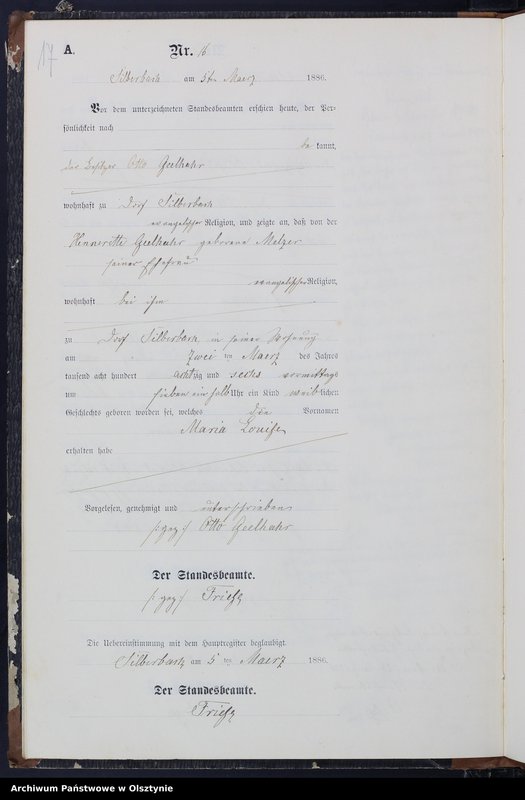 17
A.
Nr. 16
Silberbach am 5ten Maerz 1886.
Vor dem unterzeichneten Standesbeamten erschien heute, der Per-
sönlichkeit nach
be kannt,
der Besitzer Otto Geelhahr
wohnhaft zu Dorf Silberbach
evangelischer Religion, und zeigte an, daß von der
Henriette Geelhahr geborene Melzer
seiner Ehefrau
evangelischer Religion,
wohnhaft bei ihm
zu Dorf Silberbach in seiner Wohnung
am zwei ten Maerz des Jahres
tausend acht hundert achtzig und sechs vormittags
um sieben ein halb Uhr ein Kind weiblichen
Geschlechts geboren worden sei, welches die Vornamen
Maria Louise
erhalten habe
Vorgelesen, genehmigt und unterschrieben
(: gez :) Otto Geelhahr
Der Standesbeamte.
(: gez :) Friese
Die Uebereinstimmung mit dem Hauptregister beglaubigt.
Silberbach am 5 ten Maerz 1886.
Der Standesbeamte.
Friese
Archiwum Państwowe w Olsztynie